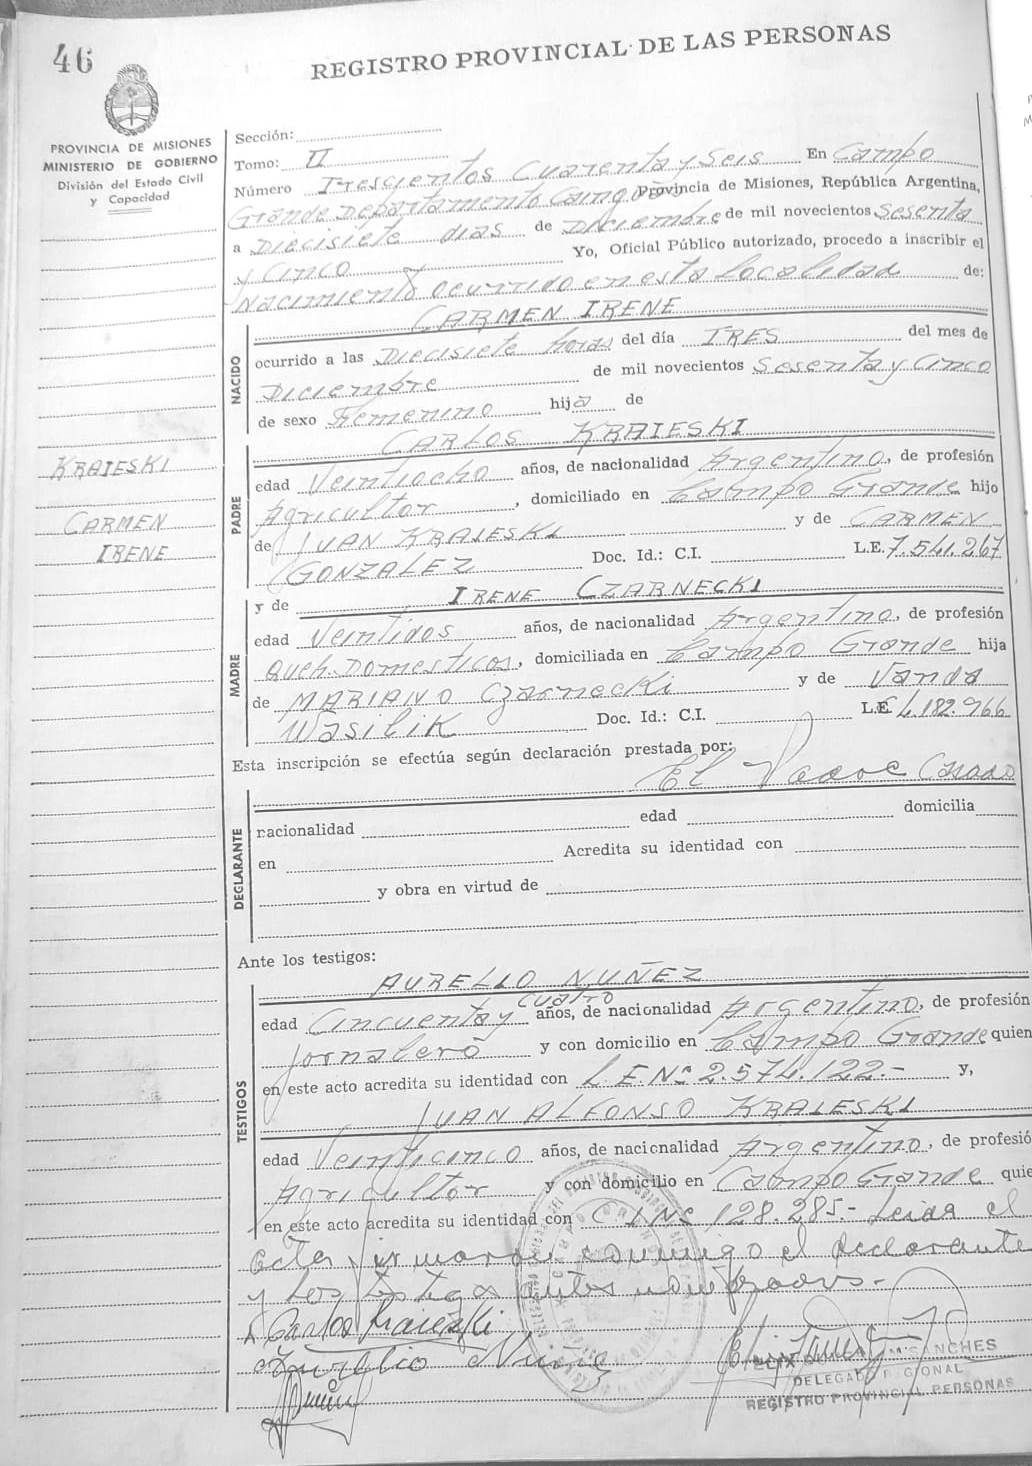 46
REGISTRO PROVINCIAL DE LAS PERSONAS
PROVINCIA DE MISIONES
MINISTERIO DE GOBIERNO
División del Estado Civil
y Capacidad
Sección:
Tomo: II
Número Trescientos Cuarenta y Seis En Campo
Grande Departamento Caingúas Provincia de Misiones, República Argentina,
a Diecisiete dias de Diciembre de mil novecientos Sesenta
y Cinco Yo, Oficial Público autorizado, procedo a inscribir el
Nacimiento ocurrido en esta Localidad de:
NACIDO
CARMEN IRENE
ocurrido a las Diecisiete horas del día TRES del mes de
Diciembre de mil novecientos Sesenta y Cinco
de sexo Femenino hija de
KRAIESKI
CARMEN
IRENE
PADRE
CARLOS KRAIESKI
edad Veintiocho años, de nacionalidad Argentino, de profesión
Agricultor, domiciliado en Campo Grande hijo
de JUAN KRAIESKI y de CARMEN
GONZALEZ Doc. Id.: C.I. L.E. 7.541.267
MADRE
y de IRENE CZARNECKI
edad Veintidos años, de nacionalidad Argentina, de profesión
Queh. Domesticos, domiciliada en Campo Grande hija
de MARIANO Czarnecki y de Vanda
Wasilik Doc. Id.: C.I. L.E 4.182.966
Esta inscripción se efectúa según declaración prestada por:
El Padre Casado
DECLARANTE
nacionalidad edad domicilia
en Acredita su identidad con
y obra en virtud de
Ante los testigos:
TESTIGOS
AURELIO NUÑEZ
edad Cincuenta y cuatro años, de nacionalidad Argentino, de profesión
Jornalero y con domicilio en Campo Grande quien
en este acto acredita su identidad con L.E. Nº 2.574.122.- y,
JUAN ALFONSO KRAIESKI
edad Veinticinco años, de nacionalidad Argentino, de profesió
Agricultor y con domicilio en Campo Grande quie
en este acto acredita su identidad con C I Nº 128.285.- Leida el
acta, firmaron conmigo el declarante
y los testigos antes nombrados.-
Carlos Kraieski
Aurelio Nuñez
FELIX SANCHES
DELEGADO REGIONAL
REGISTRO PROVINCIAL PERSONAS